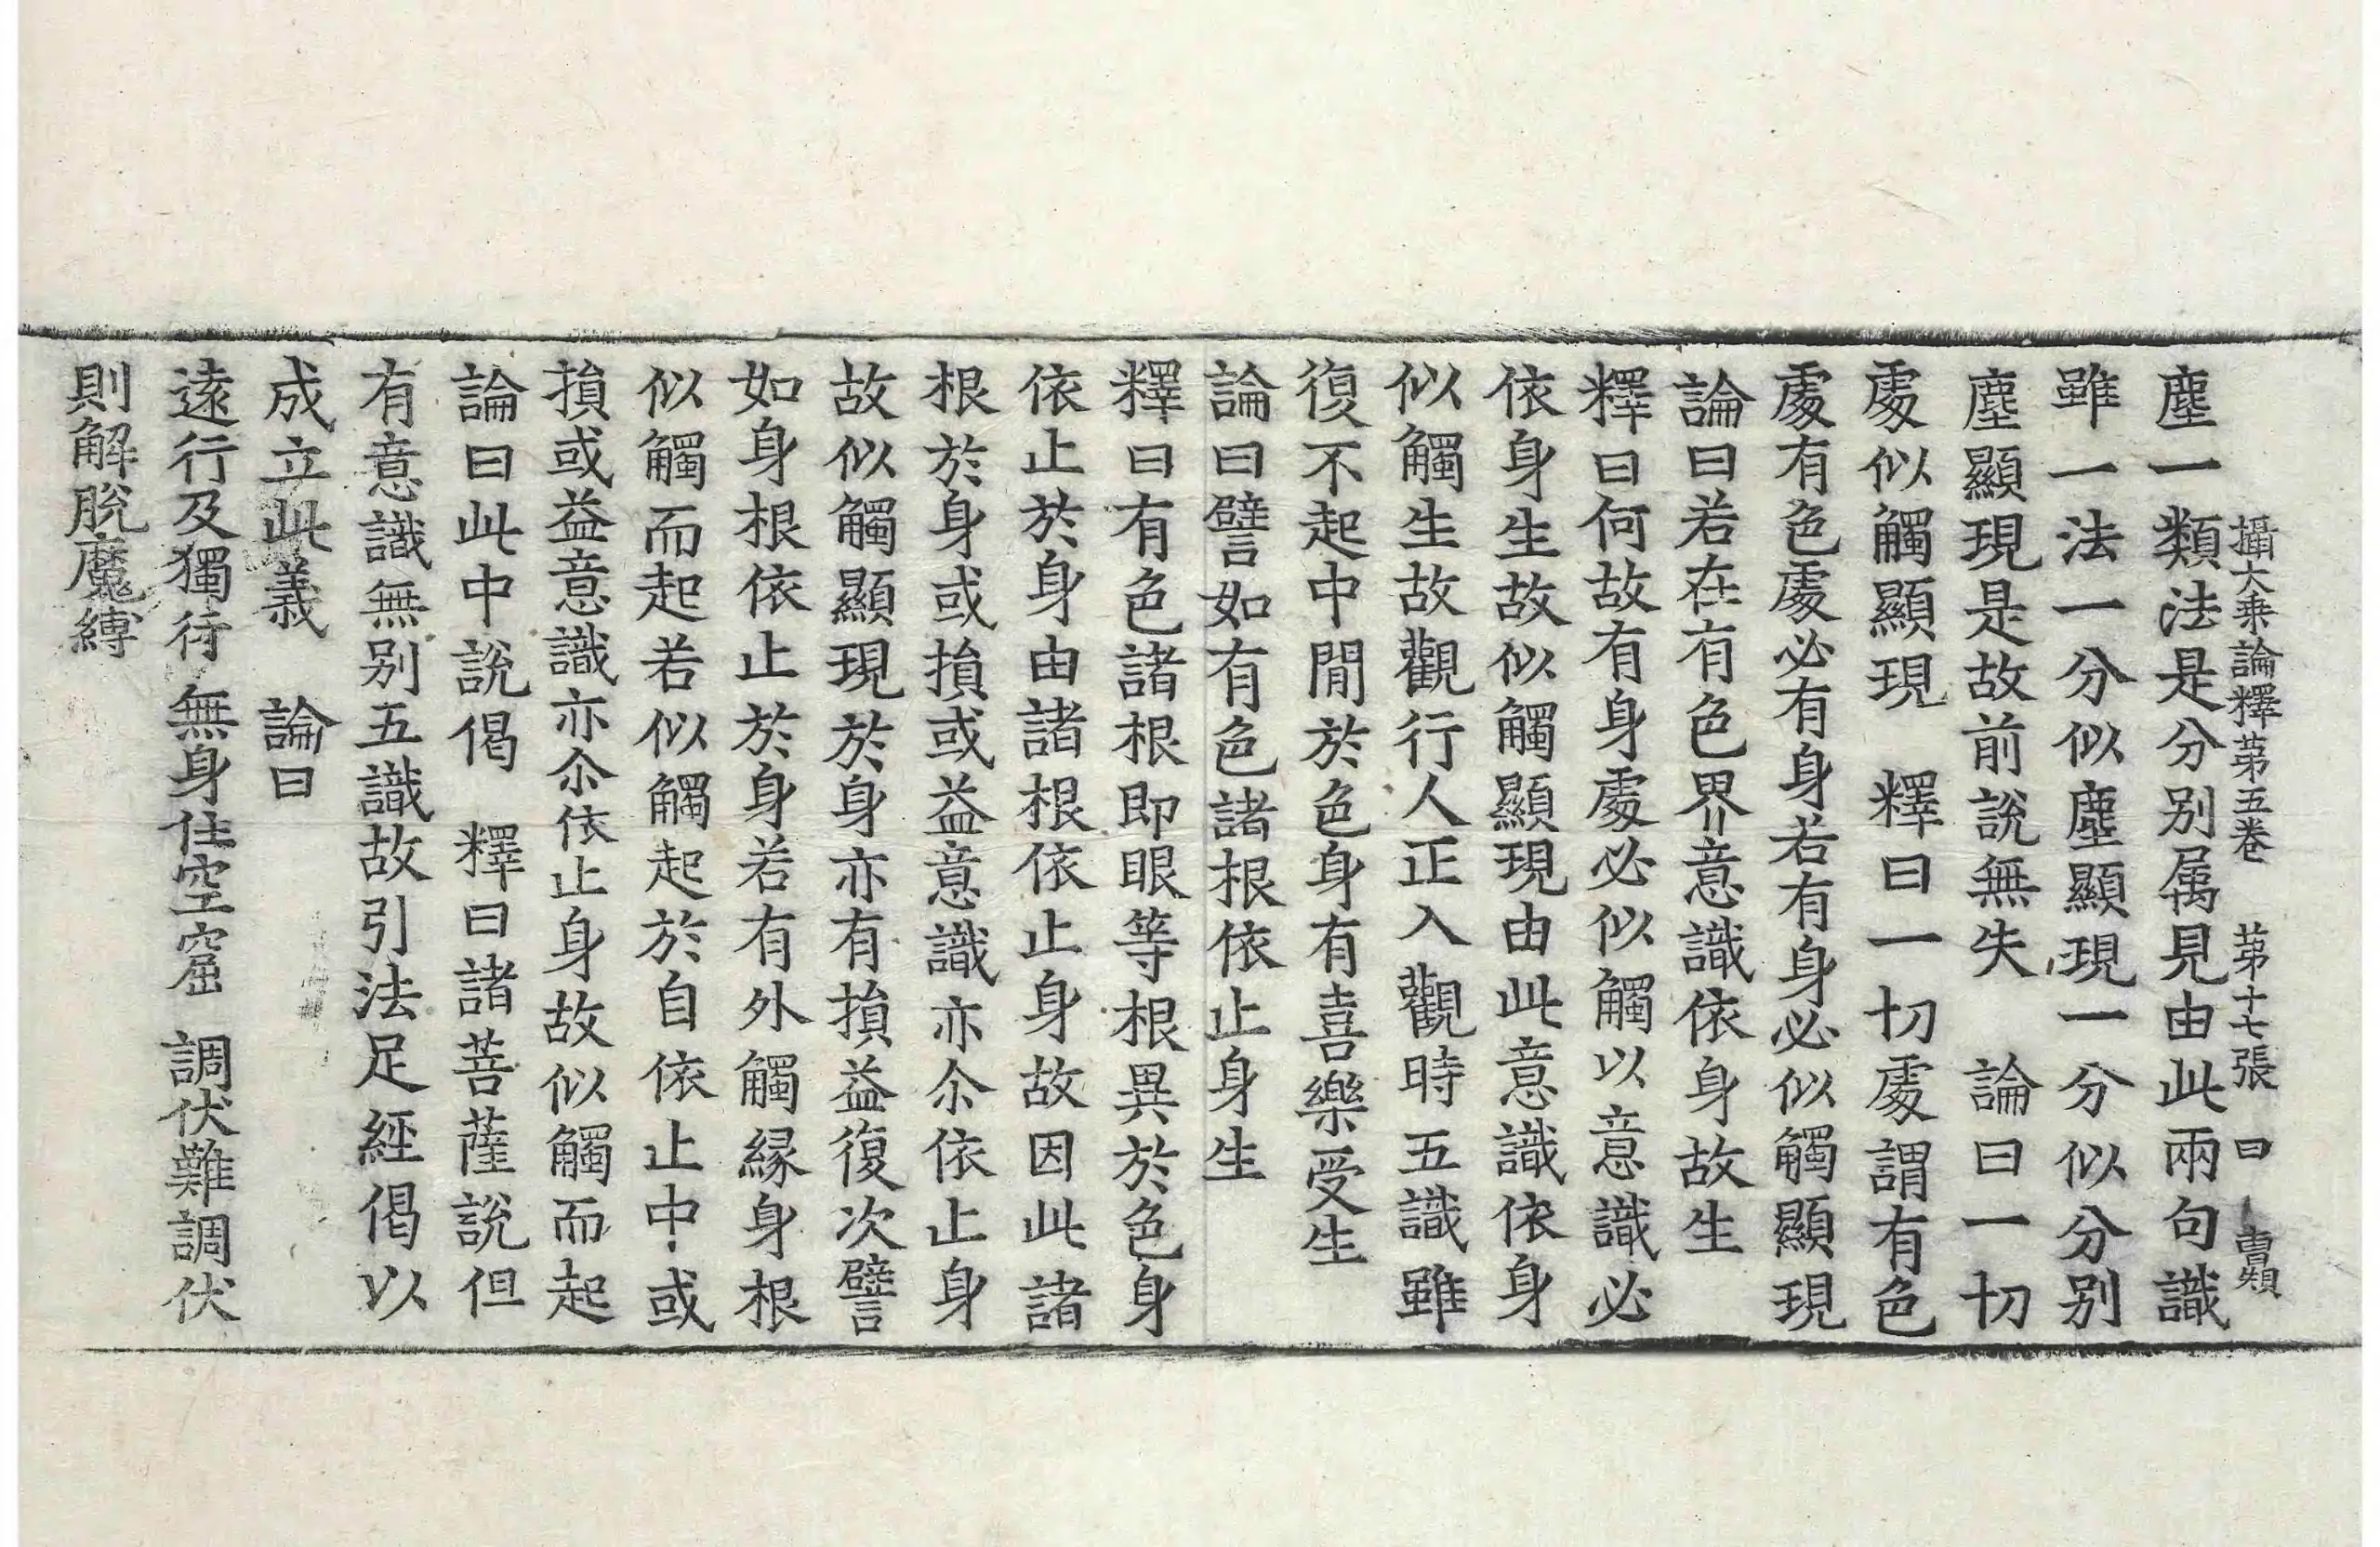 攝大乗論釋苐五巻　苐十七張　曰
塵一類法是分別属見由此兩句識
雖一法一分似塵顯現一分似分別
塵顯現是故前說無失　論曰一切
處似觸顯現　釋曰一切處謂有色
處有色處必有身若有身必似觸顯現
論曰若在有色界意識依身故生
釋曰何故有身處必似觸以意識必
依身生故似觸顯現由此意識依身
似觸生故觀行人正入觀時五識雖
復不起中間於色身有喜樂受生
論曰譬如有色諸根依止身生
釋曰有色諸根即眼等根異於色身
依止於身由諸根依止身故因此諸
根於身或損或益意識亦尒依止身
故似觸顯現於身亦有損益復次譬
如身根依止於身若有外觸緣身根
似觸而起若似觸起於自依止中或
損或益意識亦尒依止身故似觸而起
論曰此中說偈　釋曰諸菩薩說但
有意識無別五識故引法足經偈以
成立此義　論曰
遠行及獨行　無身住空窟　調伏難調伏
則解脫魔縛